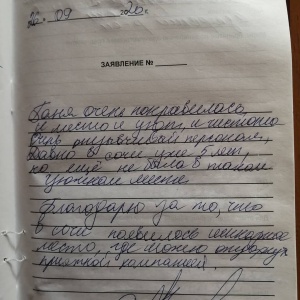 26. 09 2020г.
ЗАЯВЛЕНИЕ №
Баня очень понравилась
и место и уют, и чистота
очень отзывчивый персонал,
Давно в сочи уже 5 лет,
но ещё не была в таком
уютном месте
Благодарю за то, что
в сочи появилось шикарное
место, где можно отдохнуть
приятной компанией.